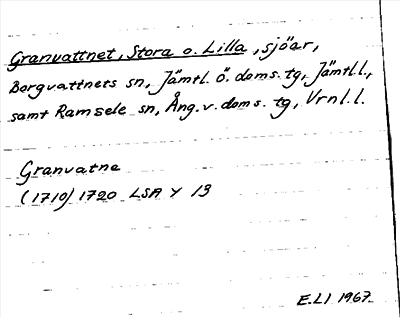 Granvattnet, Stora o. Lilla, sjöar,
Borgvattnets sn, Jämtl. ö. doms. tg, Jämtl.l.,
samt Ramsele sn, Ång. v. doms. tg, Vrnl.l.
Granvatne
(1710) 1720 LSA Y 13
E.LI 1967